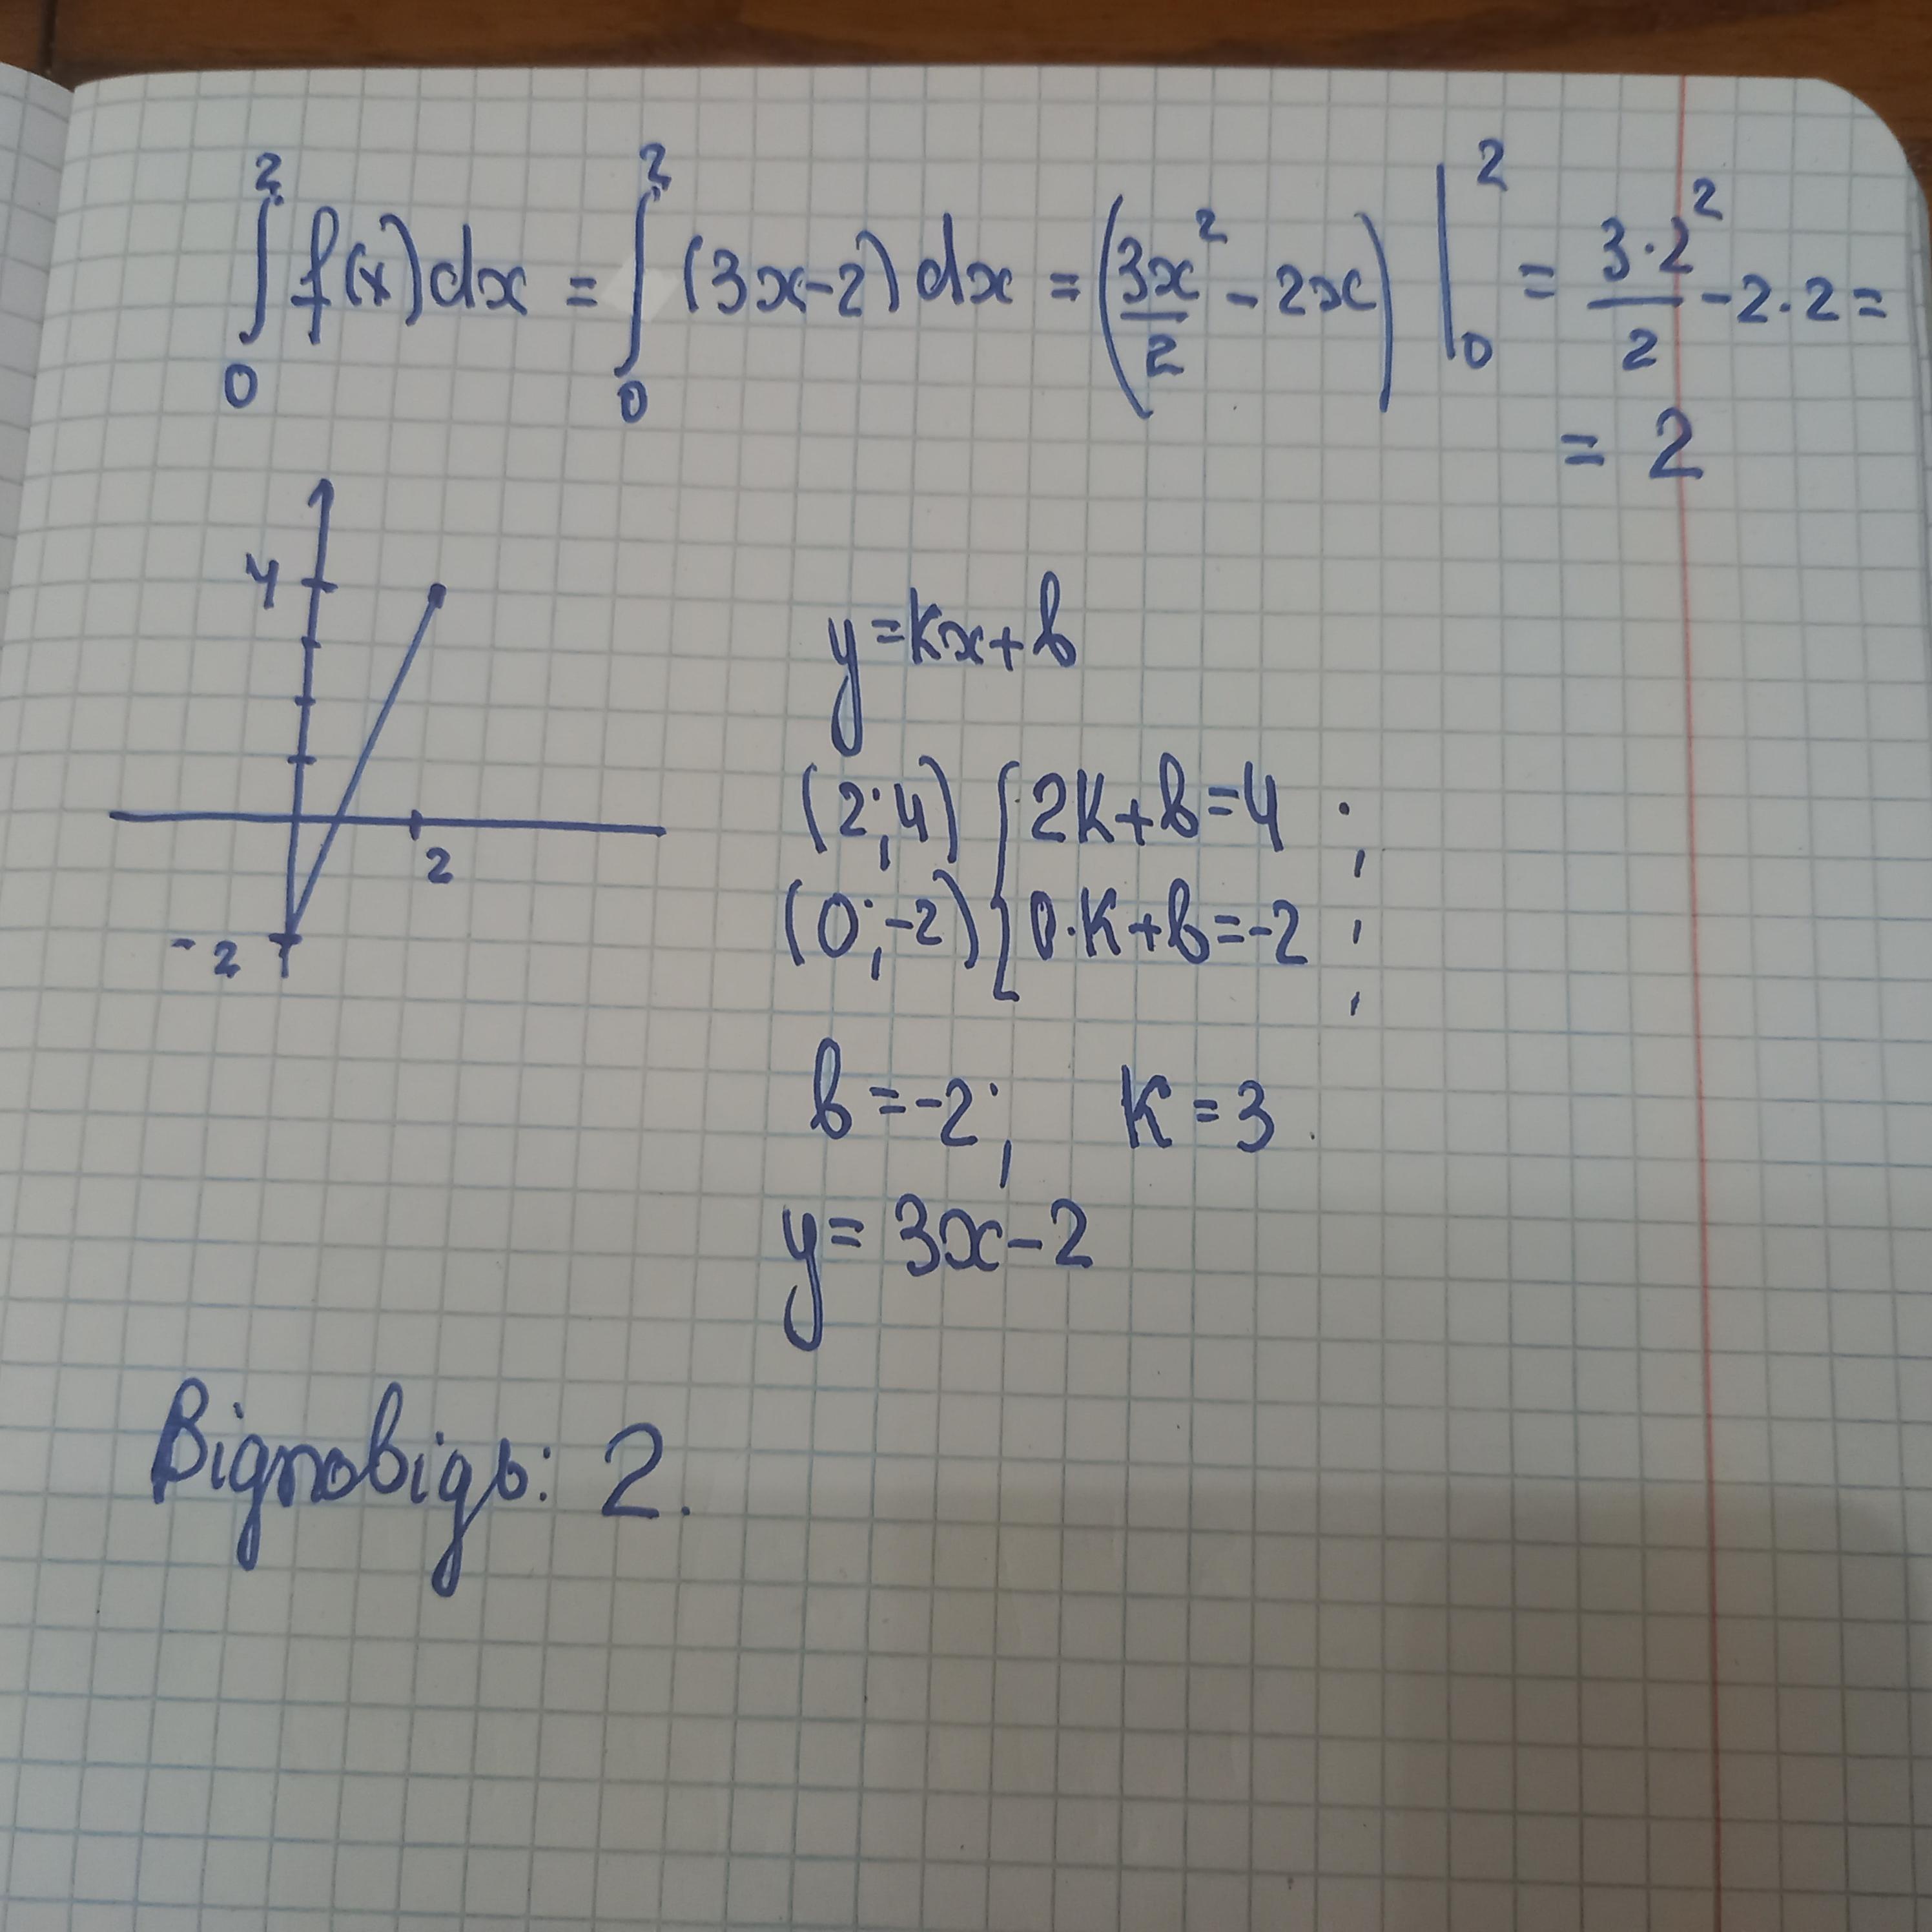 ∫₀² f(x)dx = ∫₀² (3x-2)dx = (3x²/2 - 2x) |₀² = 3·2²/2 - 2·2 =
= 2
4
2
-2
y=kx+b
(2;4) { 2k+b=4 ;
(0;-2) { 0·k+b=-2 ;
b=-2; k=3
y=3x-2
Відповідь: 2.